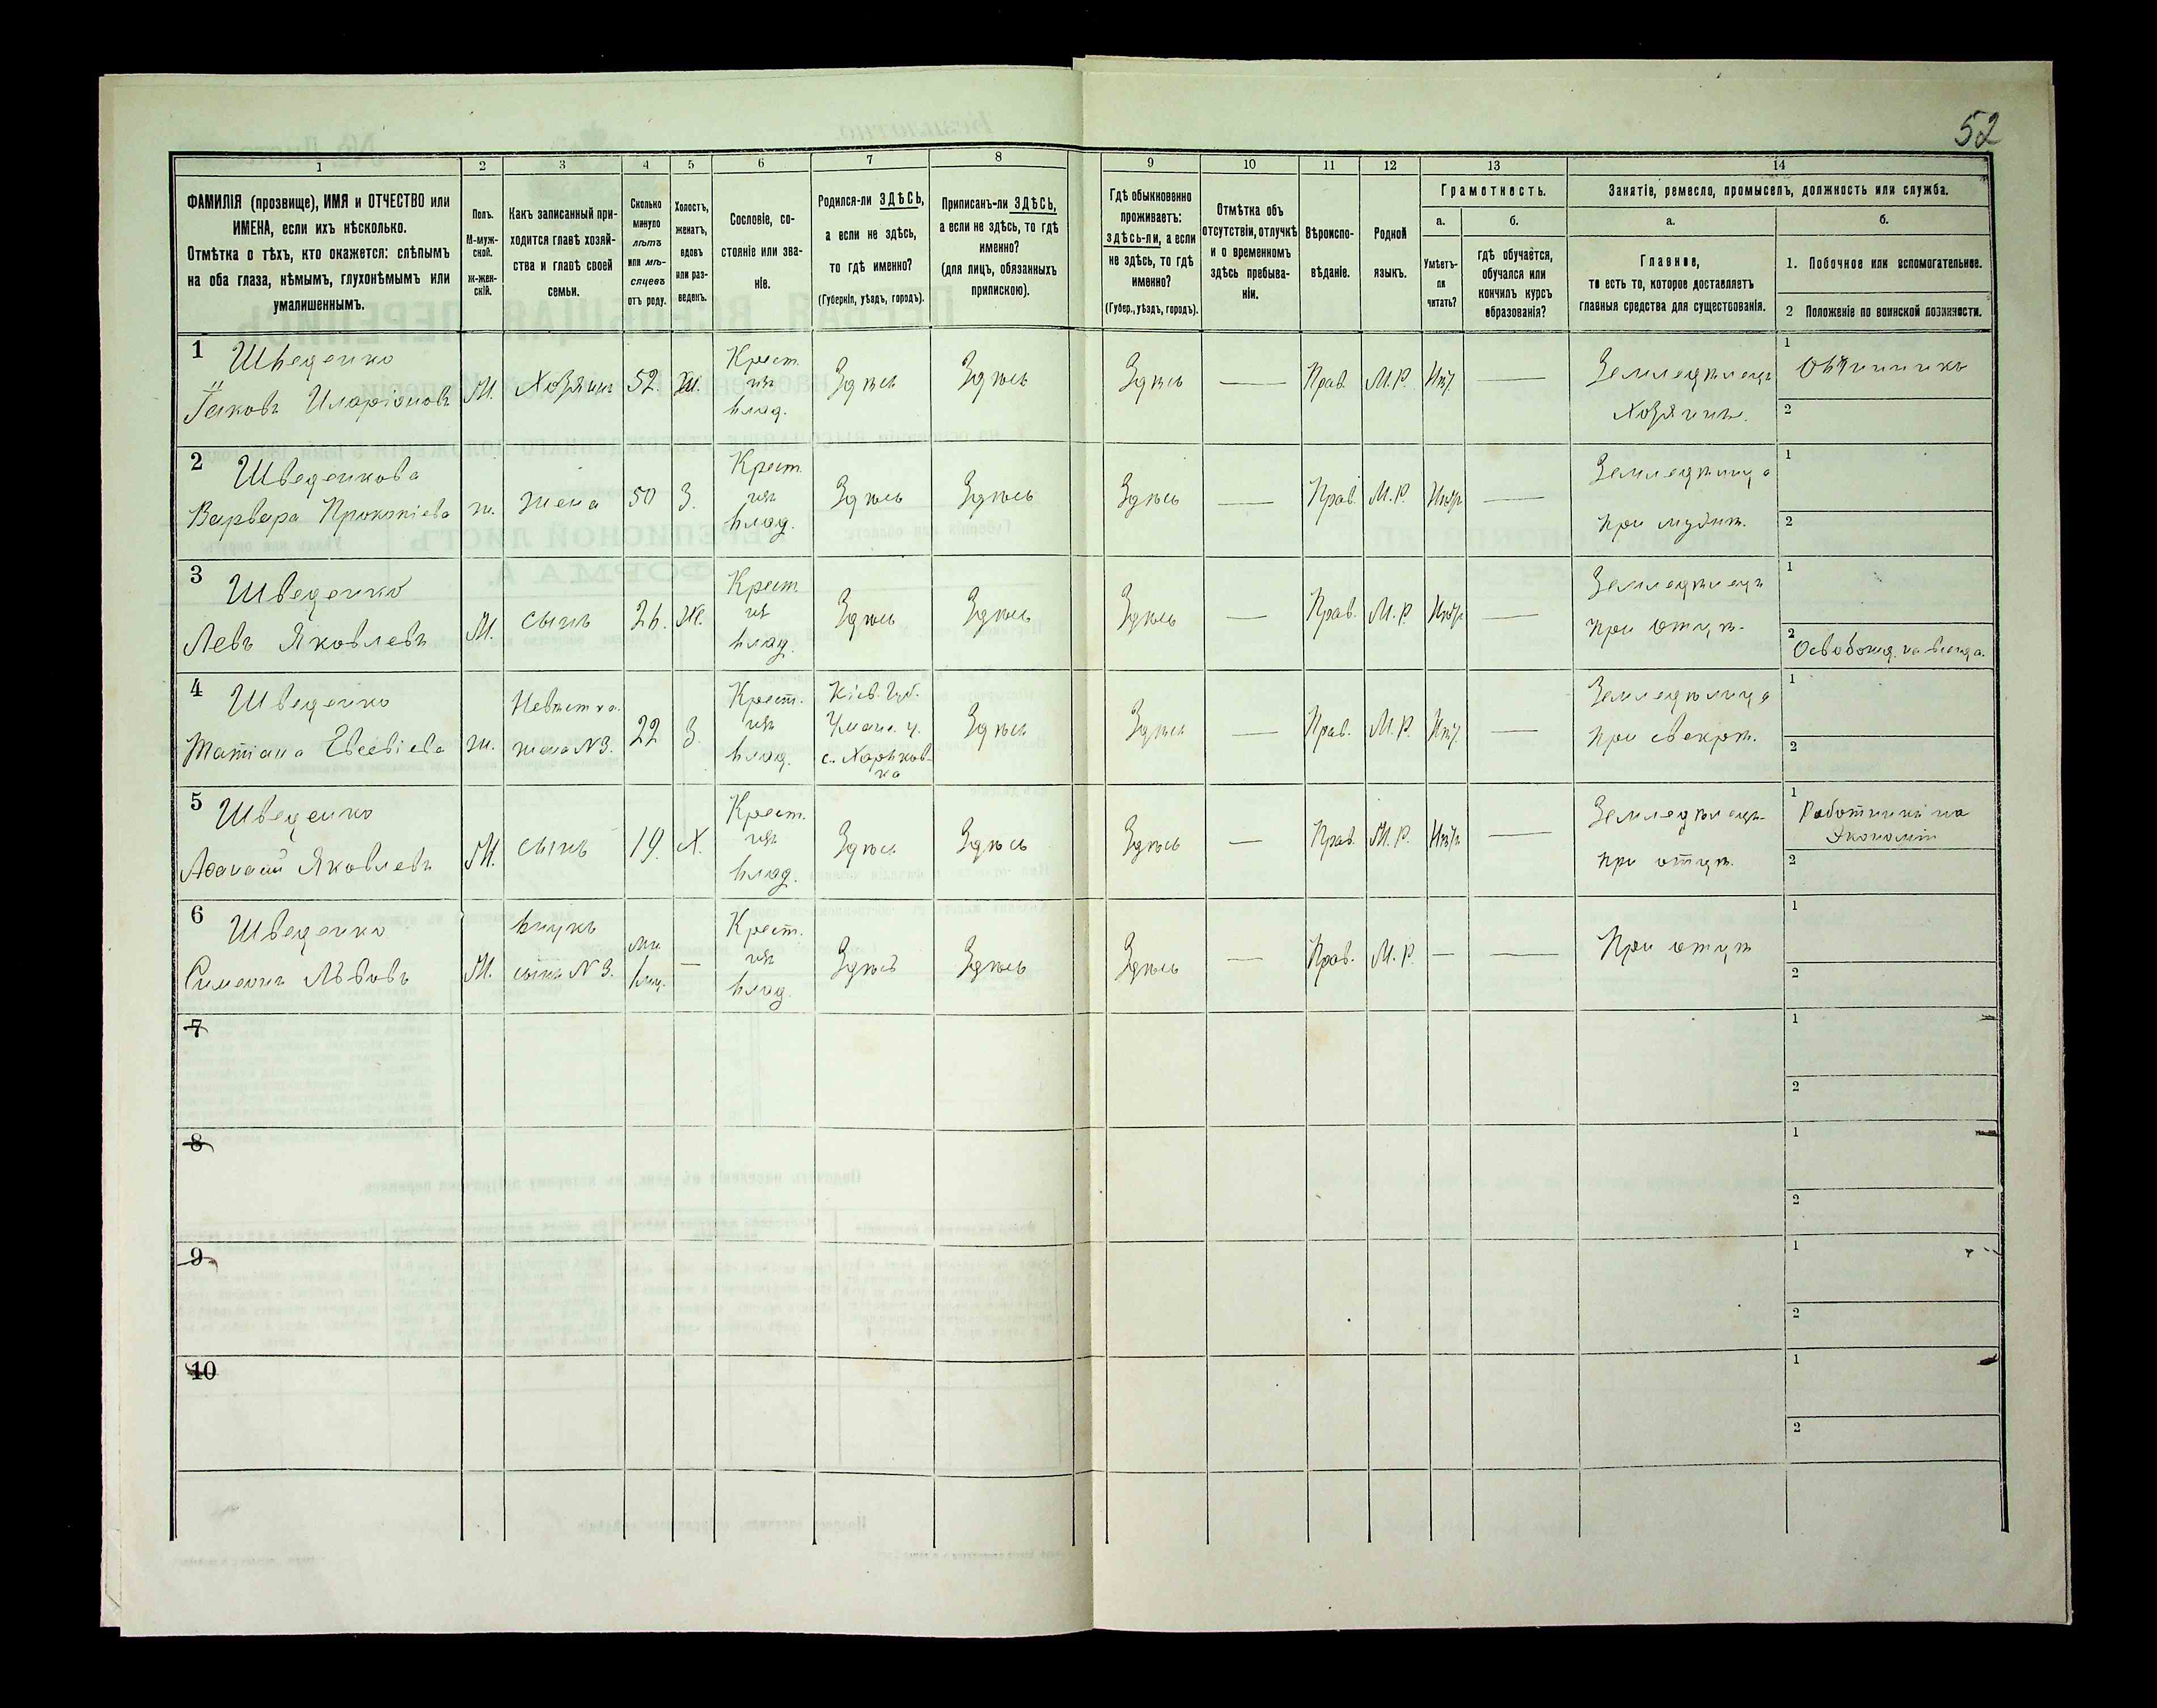 52
1 2 3 4 5 6 7 8 9 10 11 12 13 14
ФАМИЛІЯ (прозвище), ИМЯ и ОТЧЕСТВО или
ИМЕНА, если ихъ нѣсколько.
Отмѣтка о тѣхъ, кто окажется: слѣпымъ
на оба глаза, нѣмымъ, глухонѣмымъ или
умалишеннымъ.
Полъ.
М-муж-
ской.
Ж-жен-
скій.
Какъ записанный при-
ходится главѣ хозяй-
ства и главѣ своей
семьи.
Сколько
минуло
лѣтъ
или мѣ-
сяцевъ
отъ роду.
Холостъ,
женатъ,
вдовъ
или раз-
веденъ.
Сословіе, со-
стояніе или зва-
ніе.
Родился-ли ЗДѢСЬ,
а если не здѣсь,
то гдѣ именно?
(Губернія, уѣздъ, городъ).
Приписанъ-ли ЗДѢСЬ,
а если не здѣсь, то гдѣ
именно?
(для лицъ, обязанныхъ
припискою).
Гдѣ обыкновенно
проживаетъ:
здѣсь-ли, а если
не здѣсь, то гдѣ
именно?
(Губер., уѣздъ, городъ).
Отмѣтка объ
отсутствіи, отлучкѣ
и о временномъ
здѣсь пребыва-
ніи.
Вѣроиспо-
вѣданіе.
Родной
языкъ.
Грамотность.
а.
Умѣетъ-
ли
читать?
б.
гдѣ обучается,
обучался или
кончилъ курсъ
образованія?
Занятіе, ремесло, промыселъ, должность или служба.
а.
Главное,
то есть то, которое доставляетъ
главныя средства для существованія.
б.
1. Побочное или вспомогательное.
2 Положеніе по воинской повинности.
1 Шведенко
Яковъ Иларіоновъ
М.
Хозяинъ
52
Ж.
Крест.
изъ
влад.
Здѣсь
Здѣсь
Здѣсь
—
Прав.
М.Р.
Нѣтъ
—
Земледѣлецъ
Хозяинъ.
1 Овчинникъ
2
2 Шведенкова
Варвара Прокопіева
ж.
жена
50
З.
Крест.
изъ
влад.
Здѣсь
Здѣсь
Здѣсь
—
Прав.
М.Р.
Нѣтъ
—
Земледѣлица
при мужѣ.
1
2
3 Шведенко
Левъ Яковлевъ
М.
сынъ
26.
Ж.
Крест.
изъ
влад.
Здѣсь
Здѣсь
Здѣсь
—
Прав.
М.Р
Нѣтъ
—
Земледѣлецъ
при отцѣ.
1
2 Освобожд. на всегда.
4 Шведенко
Татіана Евсевіева
ж.
Невѣстка.
жена N 3.
22
З.
Крест.
изъ
влад.
Кіев. Губ.
Уман. у.
с. Харьков-
ка
Здѣсь
Здѣсь
—
Прав.
М.Р.
Нѣтъ
—
Земледѣлица
при свекрѣ.
1
2
5 Шведенко
Аѳанасій Яковлевъ
М.
сынъ
19.
Х.
Крест.
изъ
влад.
Здѣсь
Здѣсь
Здѣсь
—
Прав.
М.Р.
Нѣтъ
—
Земледѣлецъ
при отцѣ.
1 Работникъ на
Экономіи
2
6 Шведенко
Симеонъ Львовъ
М.
внукъ
сынъ N 3.
—
Крест.
изъ
влад.
Здѣсь
Здѣсь
Здѣсь
—
Прав.
М.Р.
—
—
При отцѣ
1
2
7
1
2
8
1
2
9
1
2
10
1
2